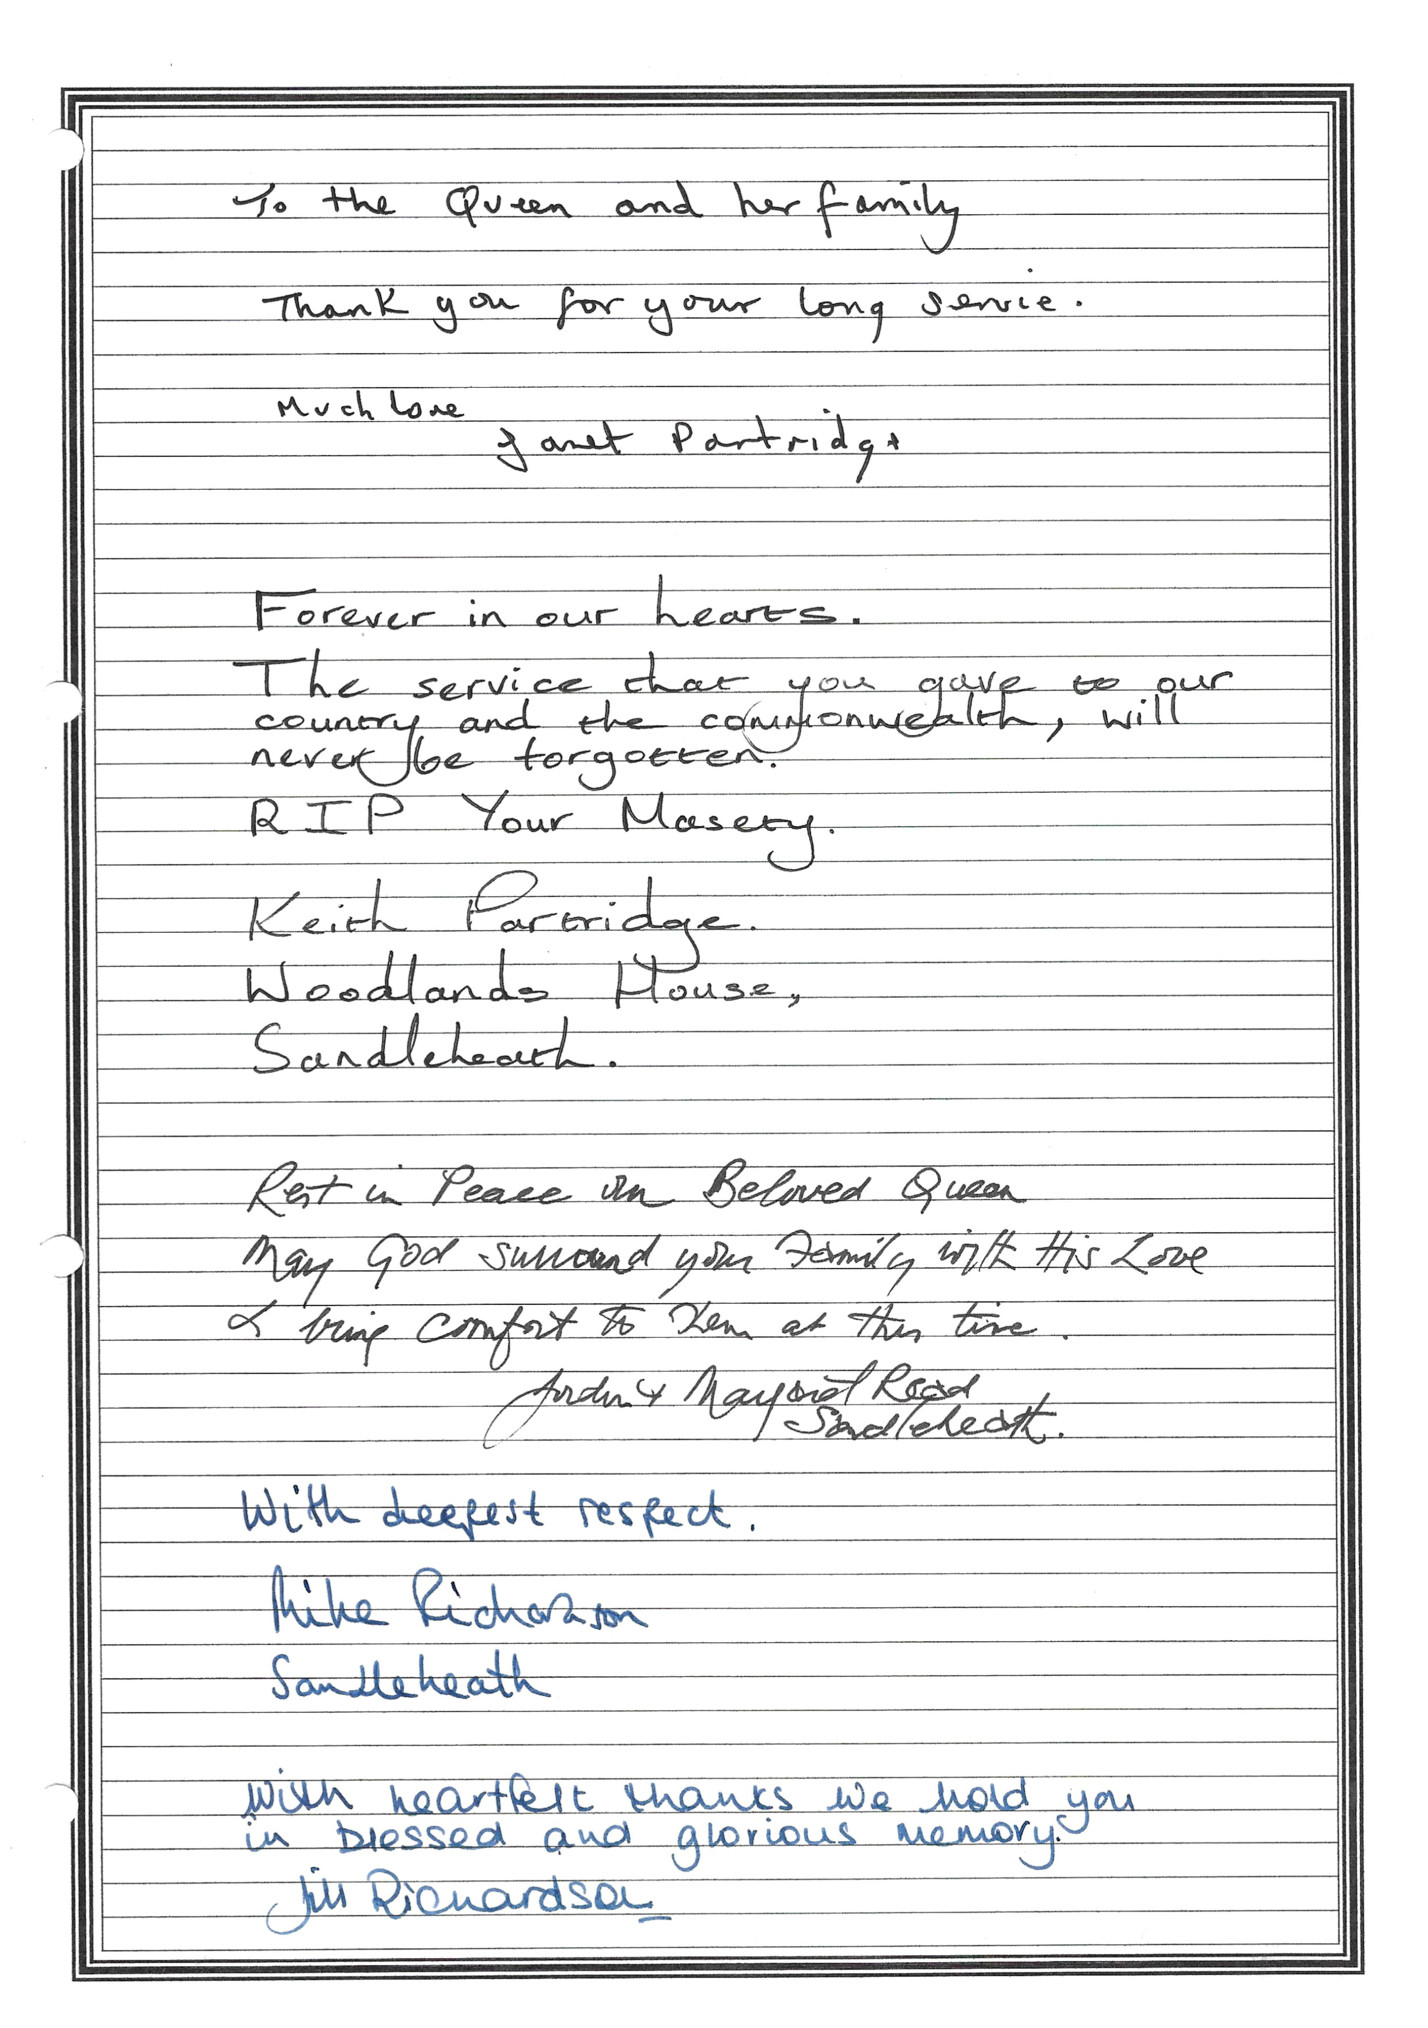 To the Queen and her family
Thank you for your long servie.
Much love
Janet Partridge
Forever in our hearts.
The service that you gave to our
country and the commonwealth, will
never be forgotten.
RIP Your Masety.
Keith Partridge.
Woodlands House,
Sandleheath.
Rest in Peace our Beloved Queen
May God surround your Family with His Love
& bring comfort to them at this time.
& Margaret Read
Sandleheath.
With deepest respect.
Mike Richardson
Sandleheath
With heartfelt thanks we hold you
in blessed and glorious memory.
Jill Richardson